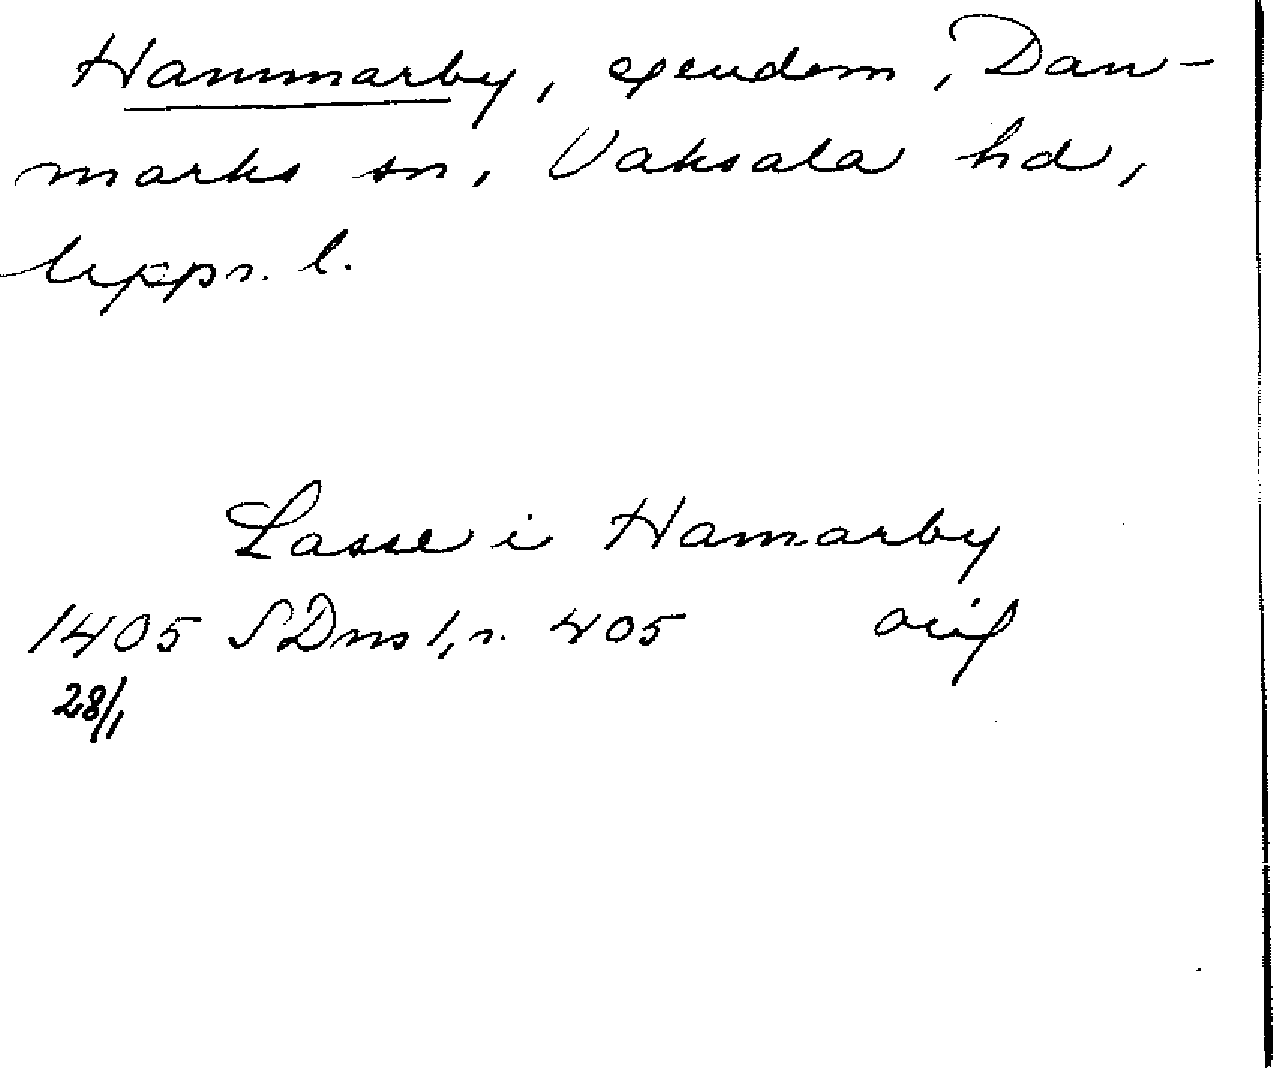 Hammarby, egendom, Dan-
marks sn, Vaksala hd,
Upps. l.
Lasse i Hamarby
1405 SDns 1, s. 405 orig
28/1